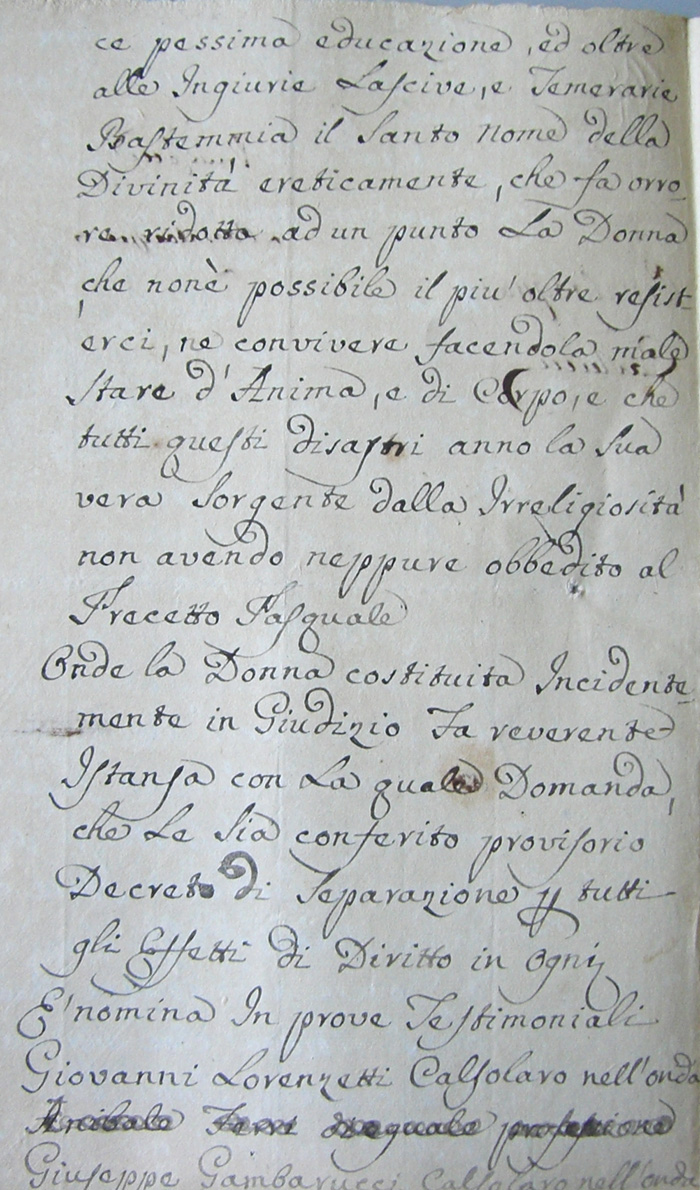 ce pessima educazione, ed oltre
alle Ingiurie Lascive, e Temerarie
Bastemmia il Santo nome della
Divinità ereticamente, che fa orro
re ridotta ad un punto La Donna
che nonè possibile il piu' oltre resist-
erci, ne convivere facendola male
stare d'Anima, e di Corpo, e che
tutti questi disastri anno la Sua
vera Sorgente dalla Irreligiosità
non avendo neppure obbedito al
Precetto Pasquale
Onde la Donna costituita Incidente-
mente in Giudizio Fa reverente
Istansa con La quale Domanda,
che Le Sia conferito provisorio
Decreto di Separazione tutti
gli Effetti di Diritto in Ogni
E' nomina In prove Testimoniali
Giovanni Lorenzetti Calsolaro nell'onda
professione
Giuseppe Gambarucci Calsolaro nell'onda